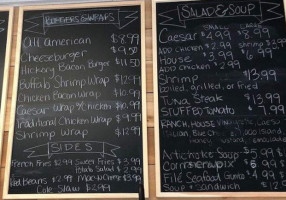 BURGERS & WRAPS
All American $8.99
Cheeseburger $9.50
Hickory Bacon Burger $11.50
Buffalo Shrimp Wrap $12.99
Chicken Bacon Wrap $10.99
Caesar Wrap w/ chicken $10.99
Traditional Chicken Wrap $9.99
Shrimp Wrap $12.99
SIDES
French Fries $2.99 Sweet Fries $3.99
Potato Salad $2.99
Beans $2.99 Mac-n-Cheese
Cole Slaw $2.99
SALAD & SOUP
SMALL LARGE
Caesar $4.99 $8.99
ADD Chicken $2.99 shrimp
HOUSE $6.99
ADD Chicken $2.99
Shrimp $13.99
boiled, grilled, or fried
Tuna Steak $13.99
STUFFED TOMATO $7.99
RANCH HOUSE
Italian, Blue Island
Honey
Artichoke Soup
Corn
File Seafood Gumbo
Soup & Sandwich $12